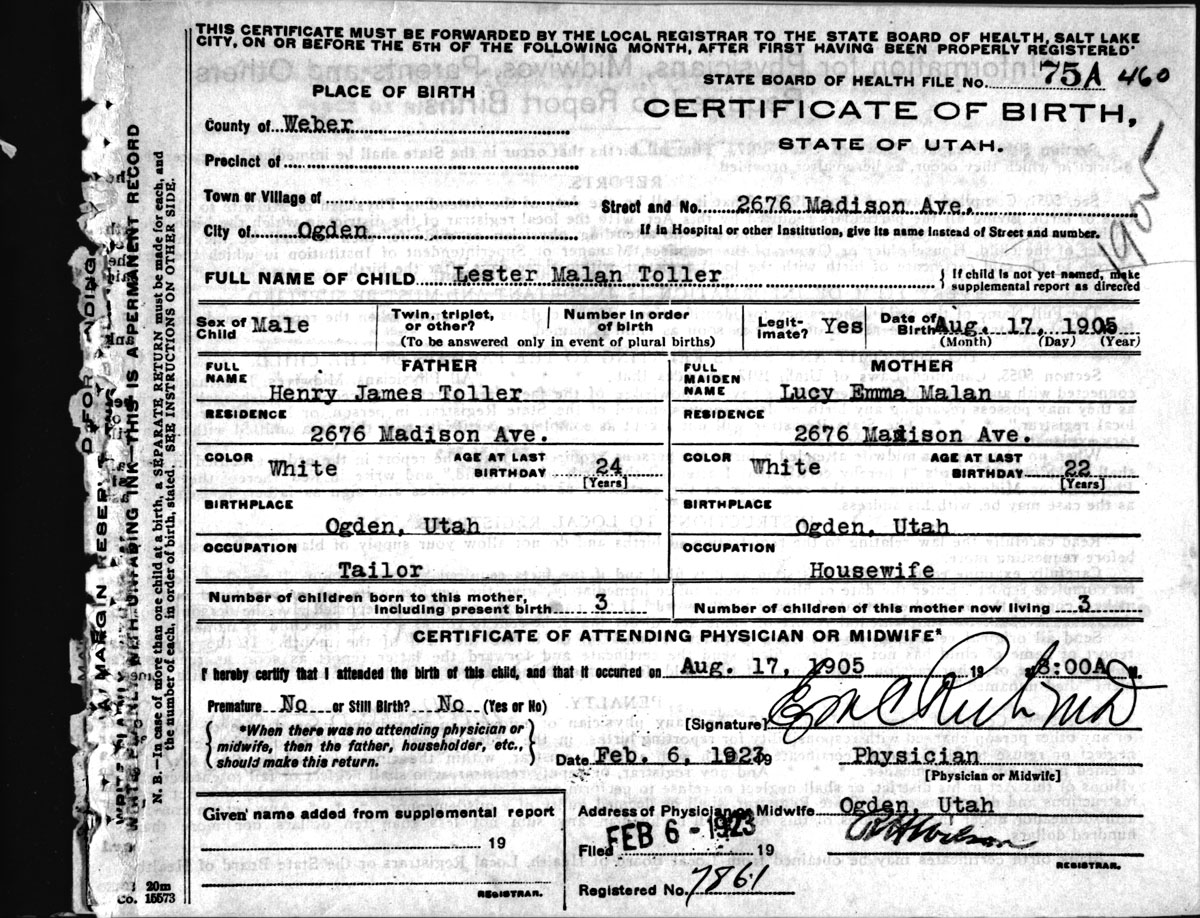 THIS CERTIFICATE MUST BE FORWARDED BY THE LOCAL REGISTRAR TO THE STATE BOARD OF HEALTH, SALT LAKE
CITY, ON OR BEFORE THE 5TH OF THE FOLLOWING MONTH, AFTER FIRST HAVING BEEN PROPERLY REGISTERED
STATE BOARD OF HEALTH FILE No. 75A 460
PLACE OF BIRTH
CERTIFICATE OF BIRTH,
STATE OF UTAH.
County of Weber
Precinct of
Town or Village of
Street and No. 2676 Madison Ave.
City of Ogden
If in Hospital or other Institution, give its name instead of Street and number.
FULL NAME OF CHILD Lester Malan Toller
} If child is not yet named, make
supplemental report as directed
Sex of Child Male
Twin, triplet, or other?
Number in order of birth
(To be answered only in event of plural births)
Legitimate? Yes
Date of Birth Aug. 17, 1905
(Month) (Day) (Year)
FATHER
FULL NAME Henry James Toller
RESIDENCE
2676 Madison Ave.
COLOR White AGE AT LAST BIRTHDAY 24
[Years]
BIRTHPLACE
Ogden, Utah
OCCUPATION
Tailor
MOTHER
FULL MAIDEN NAME Lucy Emma Malan
RESIDENCE
2676 Madison Ave.
COLOR White AGE AT LAST BIRTHDAY 22
[Years]
BIRTHPLACE
Ogden, Utah
OCCUPATION
Housewife
Number of children born to this mother, including present birth 3
Number of children of this mother now living 3
CERTIFICATE OF ATTENDING PHYSICIAN OR MIDWIFE*
I hereby certify that I attended the birth of this child, and that it occurred on Aug. 17, 1905 19 8:00A M.
Premature No or Still Birth? No (Yes or No)
[Signature]
{*When there was no attending physician or
midwife, then the father, householder, etc.,
should make this return.}
Date Feb. 6, 1923 19
Physician
[Physician or Midwife]
Given name added from supplemental report
19
REGISTRAR.
Address of Physician or Midwife Ogden, Utah
Filed FEB 6 - 1923 19
REGISTRAR.
Registered No. 7861
MARGIN RESERVED FOR BINDING
WRITE PLAINLY WITH UNFADING INK—THIS IS A PERMANENT RECORD
N. B.—In case of more than one child at a birth, a SEPARATE RETURN must be made for each, and
the number of each, in order of birth, stated. SEE INSTRUCTIONS ON OTHER SIDE.
20m
Co. 15573